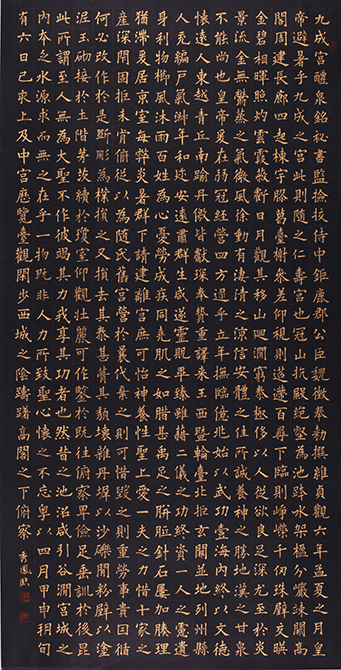 九成宮醴泉銘秘書監撿挍侍中鉅鹿郡公臣魏徵奉勅撰維貞觀六年孟夏之月皇
帝避暑乎九成之宮此則隨之仁壽宮也冠山抗殿絕壑為池跨水架楹分巖竦闕高
閣周建長廊四起棟宇膠葛臺榭參差仰視則迢遰百尋下臨則崢嶸千仞珠璧交暎
金碧相暉照灼雲霞蔽虧日月觀其移山迴澗窮泰極侈以人從欲良足深尤至於炎
景流金無鬱蒸之氣微風徐動有淒清之涼信安體之佳所誠養神之勝地漢之甘泉
不能尚也皇帝爰在弱冠經營四方逮乎立年撫臨億兆始以武功壹海內終以文德
懷遠人東越青丘南踰丹儌皆獻琛奉贄重譯來王西暨輪臺北拒玄闕並地列州縣
人充編戶氣淑年和邇安遠肅群生咸遂靈貺畢臻雖藉二儀之功終資一人之慮遺
身利物櫛風沐雨百姓為心憂勞成疾同堯肌之如腊甚禹足之胼胝針石屢加腠理
猶滯爰居京室每弊炎暑群下請建離宮庶可怡神養性聖上愛一夫之力惜十家之
產深閉固拒未肯俯從以為隨氏舊宮營於曩代棄之則可惜毀之則重勞事貴因循
何必改作於是斲彫為樸損之又損去其泰甚葺其頹壞雜丹墀以沙礫間粉壁以塗
泥玉砌接於土階茅茨續於瓊室仰觀壯麗可作鑒於既往俯察卑儉足垂訓於後昆
此所謂至人無為大聖不作彼竭其力我享其功者也然昔之池沼咸引谷澗宮城之
內本乏水源求而無之在乎一物既非人力所致聖心懷之不忘粵以四月甲申朔旬
有六日己亥上及中宮歷覽臺觀閑步西城之陰躊躇高閣之下俯察
秀鳳